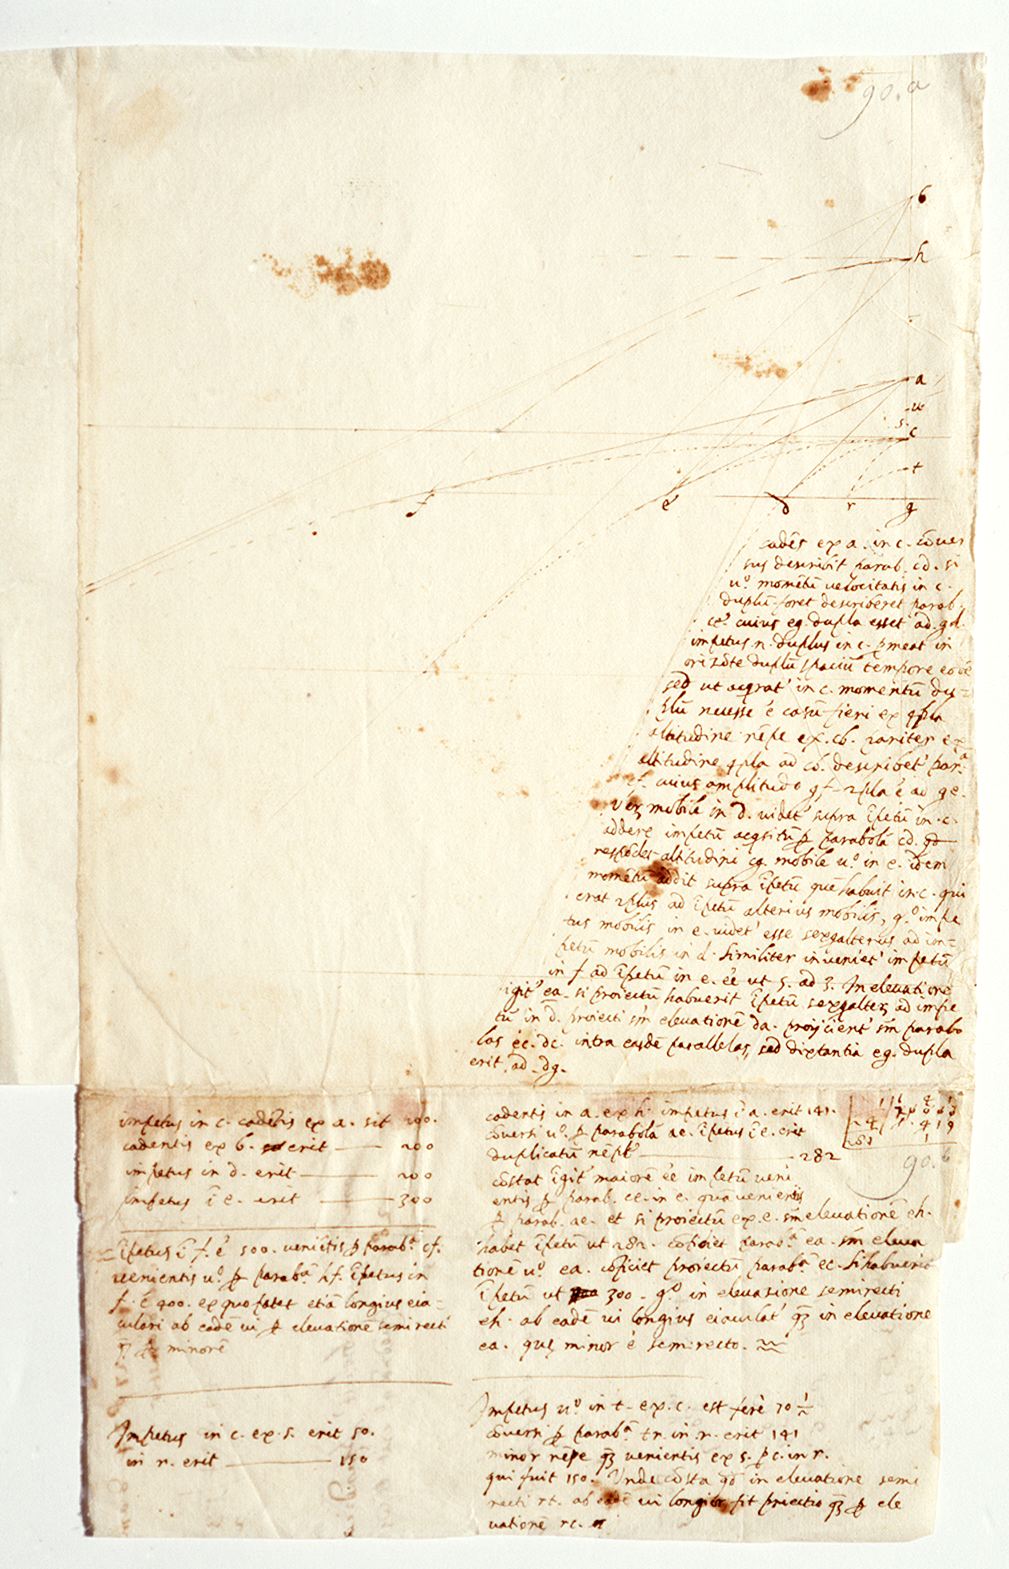 90. a
b
h
a
u
s.
c
t
f
e
d
r
g
cadẽs ex a. in c. cõuer
sus describit parab. cd. si
u.º momẽtũ velocitatis in c.
duplũ foret describeret parab.
ce. cuius eg. dupla esset ad. gd.
impetus n. duplus in c. pmeat in
orizõte duplũ spaciũ tempore eodẽ
sed ut acqrat' in c. momentũ du-
plũ necesse é casũ fieri ex qpla
altitudine nẽpe ex. cb. pariter ex
altitudine qpla ad cb. describet' par.ª
cf. cuius amplitudo gf 2pla é ad ge.
Verʒ mobile in d. uidet' supra ĩpetũ in. c.
addere impetũ acqsitũ p parabolã cd.
respõdet altitudini cg. mobile u.º in e. idem
momẽtũ addit supra ĩpetũ que habuit in. c. qui
erat 2plus ad ĩpetũ alterius mobilis, g.º impe
tus mobilis in e. uidet' esse sexqalterus ad im-
petũ mobilis in d. similiter inueniet' impetũ
in f ad ĩpetũ in e. ẽe ut 5. ad 3. In eleuatione
igit' ea. si proiectũ habuerit ĩpetũ sexqalterʒ ad impe
tũ in d. proiecti sm̃ eleuationẽ da. proijcient' sm̃ parabo
las ec. dc. intra easdẽ parallelas, sed distantia eg. dupla
erit ad dg.
impetus in c. cadẽtis ex a. sit 100.
cadentis ex b. erit — 200
impetus in d. erit — 200
impetus ĩ e. erit — 300
Ĩpetus ĩ f. é 500. veniẽtis p parab.ª cf.
uenientis u.º p parab.ª hf. ĩpetus in
f. é 400. ex quo patet etiã longius eia-
culari ab eadẽ ui p eleuationẽ semirecti
minorẽ
Impetus in c. ex. s. erit 50.
in r. erit — 150
cadentis in a. ex h. impetus ĩ a. erit 141.
cõuersi u.º p parabolã ae. ĩpetus ĩ e. erit
duplicatũ nẽpe — 282
cõstat igit' maiorẽ ẽe impetũ veni
entis p parab. ce. in e. quã venientis
p parab. ae. et si proiectũ ex. e. sm̃ eleuationẽ eh.
habet ĩpetũ ut 282. cõficiet parab.ª ea. sm̃ eleua
tionẽ u.º ea. cõficiet proiectũ parab.ª ec. si habuerit
ĩpetũ ut 300. g.º in eleuatione semirecti
eh. ab eadẽ ui longius eiaculat' qʒ in eleuatione
ea. que minor é semirecto.
90. b
Impetus u.º in t. ex. c. est ferè 70 ½
cõuersi p parab.ª tr. in. r. erit 141
minor nẽpe qʒ uenientis ex s. p c. in r.
qui fuit 150. Unde cõstat qd in eleuatione semi
recti rt. ab eadẽ ui longior fit proiectio qʒ p ele
uationẽ rc.